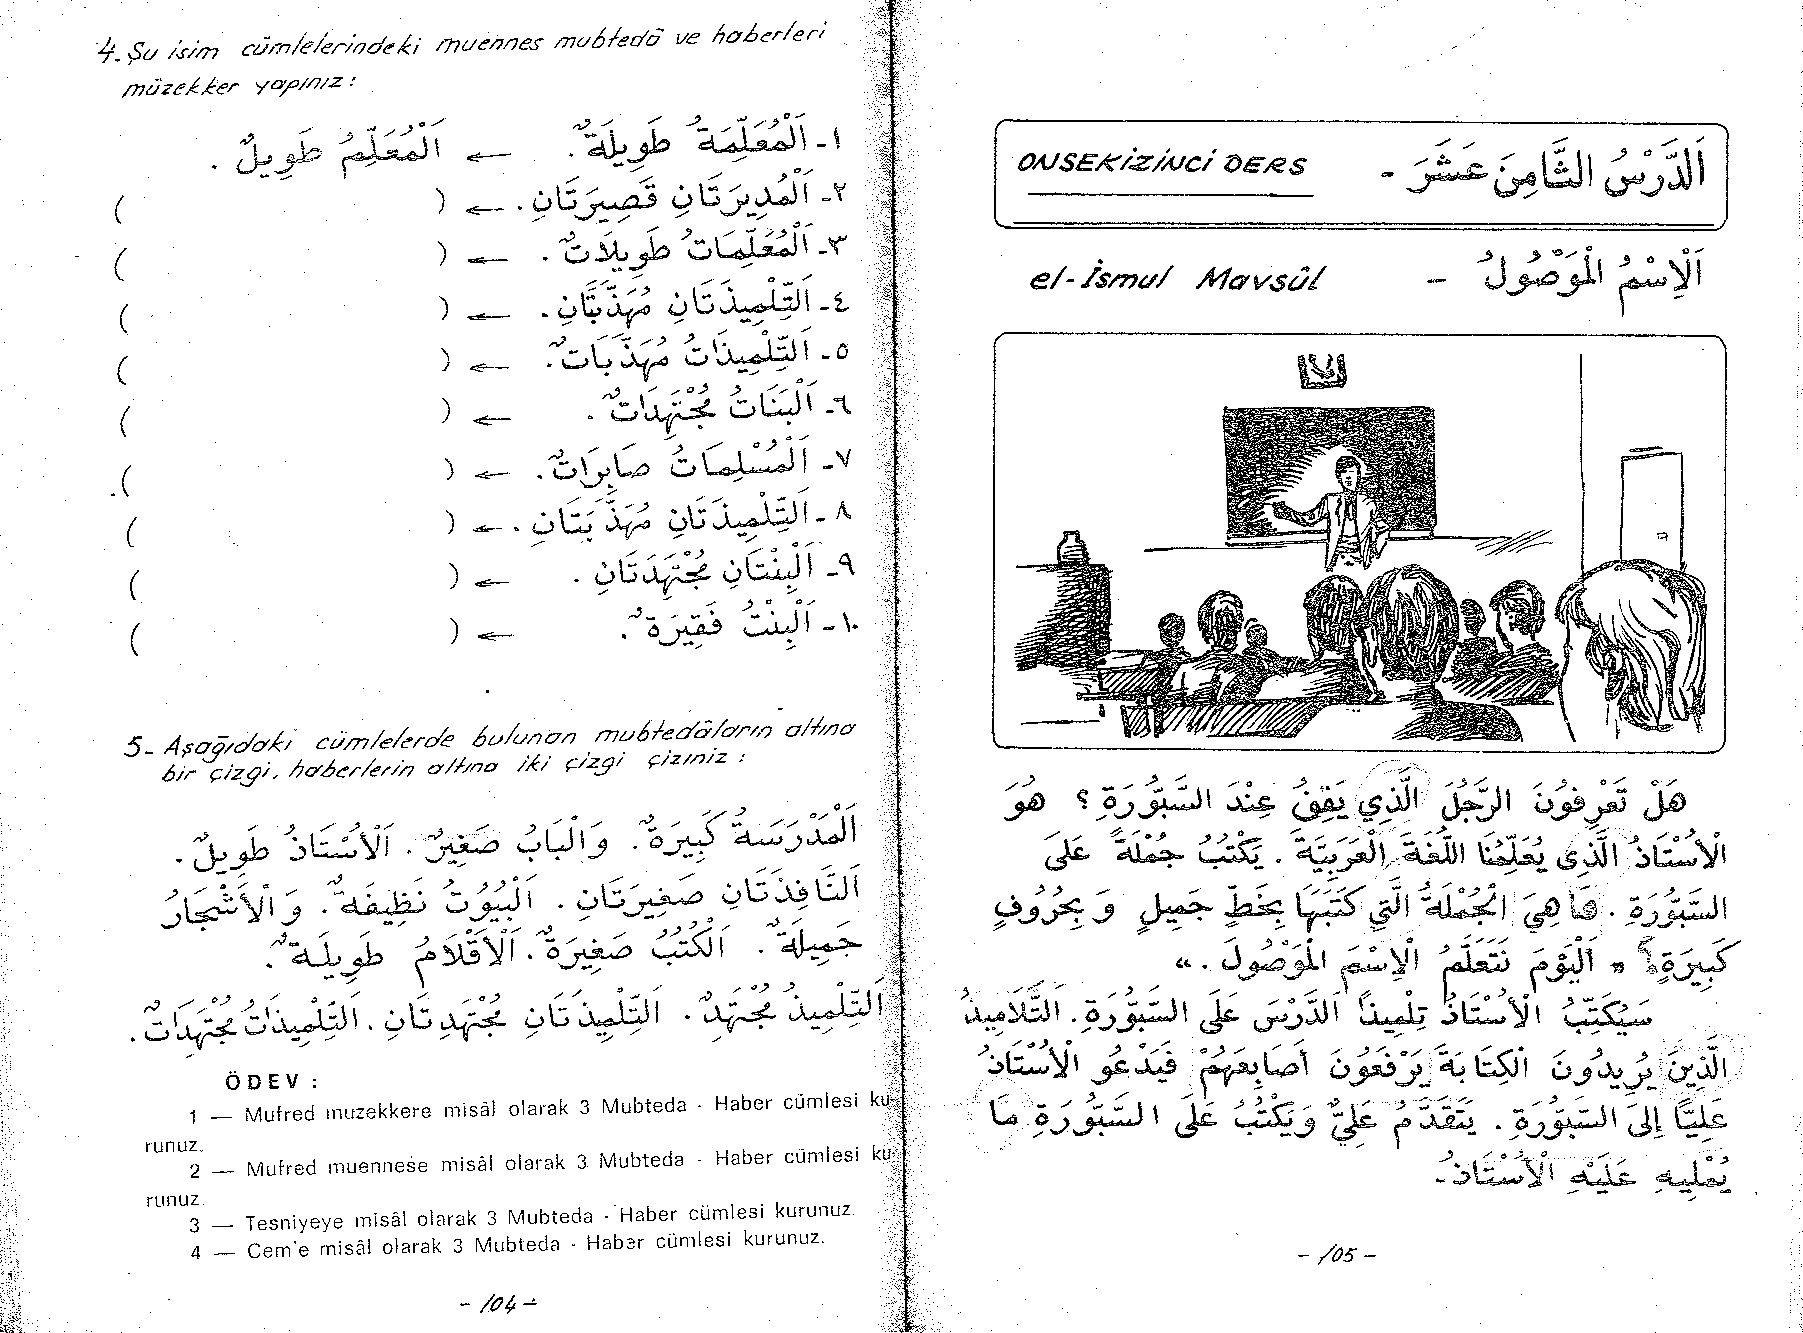 4- Şu isim cümlelerindeki muennes mubtedâ ve haberleri
müzekker yapınız :
١- اَلْمُعَلِّمَةُ طَوِيلَةٌ. ← اَلْمُعَلِّمُ طَوِيلٌ .
٢- اَلْمُدِيرَتَانِ قَصِيرَتَانِ. ← ( )
٣- اَلْمُعَلِّمَاتُ طَوِيلَاتٌ . ← ( )
٤- اَلتِّلْمِيذَتَانِ مُهَذَّبَتَانِ. ← ( )
٥- اَلتِّلْمِيذَاتُ مُهَذَّبَاتٌ. ← ( )
٦- اَلْبَنَاتُ مُجْتَهِدَاتٌ . ← ( )
٧- اَلْمُسْلِمَاتُ صَابِرَاتٌ. ← ( )
٨- اَلتِّلْمِيذَتَانِ مُهَذَّبَتَانِ. ← ( )
٩- اَلْبِنْتَانِ مُجْتَهِدَتَانِ. ← ( )
١٠- اَلْبِنْتُ فَقِيرَةٌ . ← ( )
5- Aşağıdaki cümlelerde bulunan mubtedâların altına
bir çizgi, haberlerin altına iki çizgi çiziniz :
اَلْمَدْرَسَةُ كَبِيرَةٌ. وَالْبَابُ صَغِيرٌ. اَلْأُسْتَاذُ طَوِيلٌ.
اَلنَّافِذَتَانِ صَغِيرَتَانِ. اَلْبُيُوتُ نَظِيفَةٌ. وَالْأَشْجَارُ
جَمِيلَةٌ. اَلْكُتُبُ صَغِيرَةٌ. اَلْأَقْلَامُ طَوِيلَةٌ.
اَلتِّلْمِيذُ مُجْتَهِدٌ. اَلتِّلْمِيذَتَانِ مُجْتَهِدَتَانِ. اَلتِّلْمِيذَاتُ مُجْتَهِدَاتٌ.
ÖDEV :
1 — Mufred müzekkere misâl olarak 3 Mubteda - Haber cümlesi ku-
runuz.
2 — Mufred muennese misâl olarak 3 Mubteda - Haber cümlesi ku-
runuz.
3 — Tesniyeye misâl olarak 3 Mubteda - Haber cümlesi kurunuz.
4 — Cem'e misâl olarak 3 Mubteda - Haber cümlesi kurunuz.
- 104 -
ONSEKİZİNCİ DERS اَلدَّرْسُ الثَّامِنَ عَشَرَ -
el-İsmul Mavsûl - اَلْاِسْمُ الْمَوْصُولُ
هَلْ تَعْرِفُونَ الرَّجُلَ الَّذِي يَقِفُ عِنْدَ السَّبُّورَةِ ؟ هُوَ
الْأُسْتَاذُ الَّذِي يُعَلِّمُنَا اللُّغَةَ الْعَرَبِيَّةَ . يَكْتُبُ جُمْلَةً عَلَى
السَّبُّورَةِ . هَا هِيَ الْجُمْلَةُ الَّتِي كَتَبَهَا بِخَطٍّ جَمِيلٍ وَ بِحُرُوفٍ
كَبِيرَةٍ: « اَلْيَوْمَ نَتَعَلَّمُ الْاِسْمَ الْمَوْصُولَ . »
سَيُكَتِّبُ الْأُسْتَاذُ تِلْمِيذًا الدَّرْسَ عَلَى السَّبُّورَةِ. اَلتَّلَامِيذُ
الَّذِينَ يُرِيدُونَ الْكِتَابَةَ يَرْفَعُونَ أَصَابِعَهُمْ فَيَدْعُو الْأُسْتَاذُ
عَلِيًّا إِلَى السَّبُّورَةِ . يَتَقَدَّمُ عَلِيٌّ وَيَكْتُبُ عَلَى السَّبُّورَةِ مَا
يُمْلِيهِ عَلَيْهِ الْأُسْتَاذُ.
- 105 -